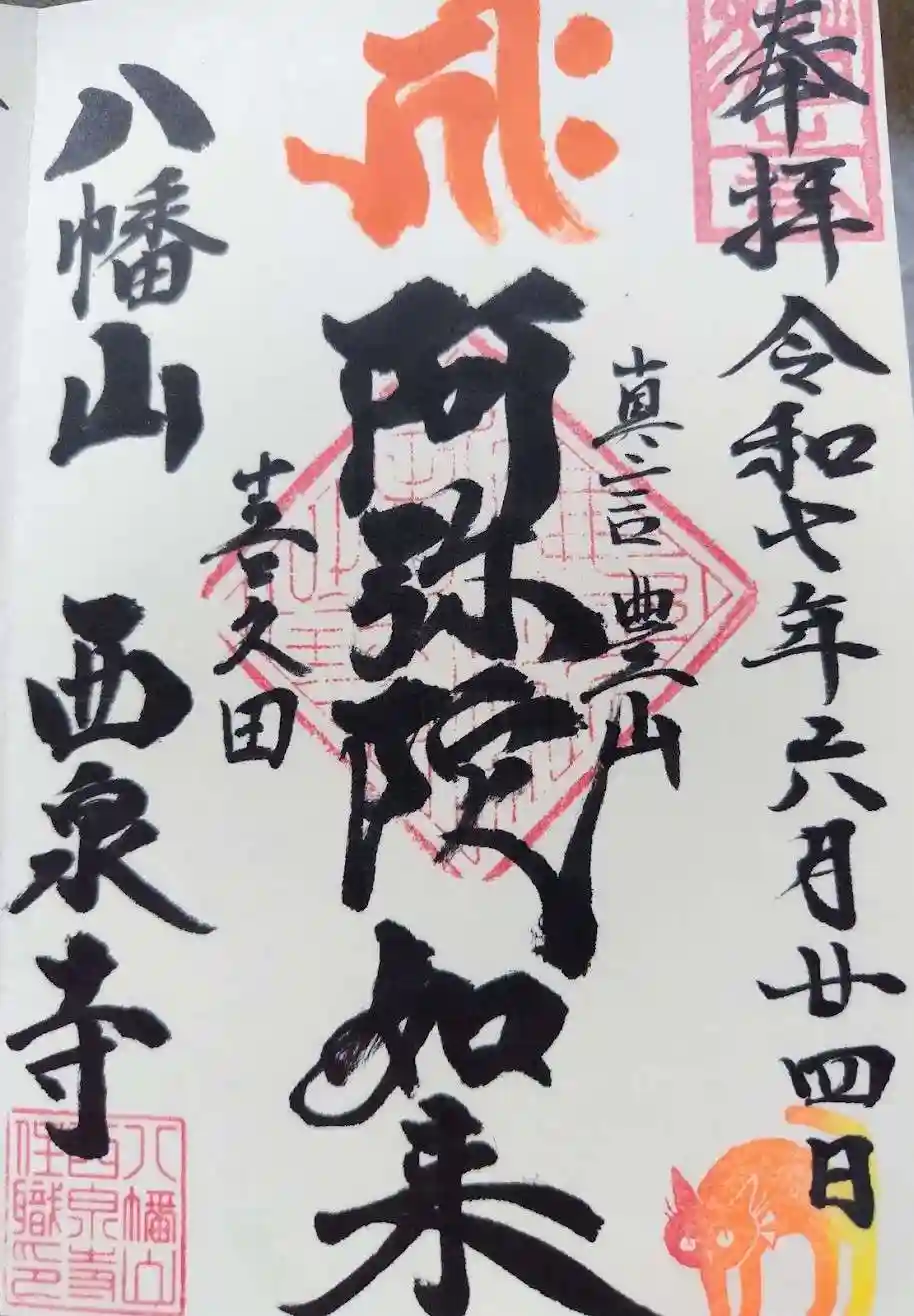 奉拝 令和七年六月廿四日
真言 豊山
阿弥陀如来
喜久田
八幡山 西泉寺
八幡山
西泉寺
住職印